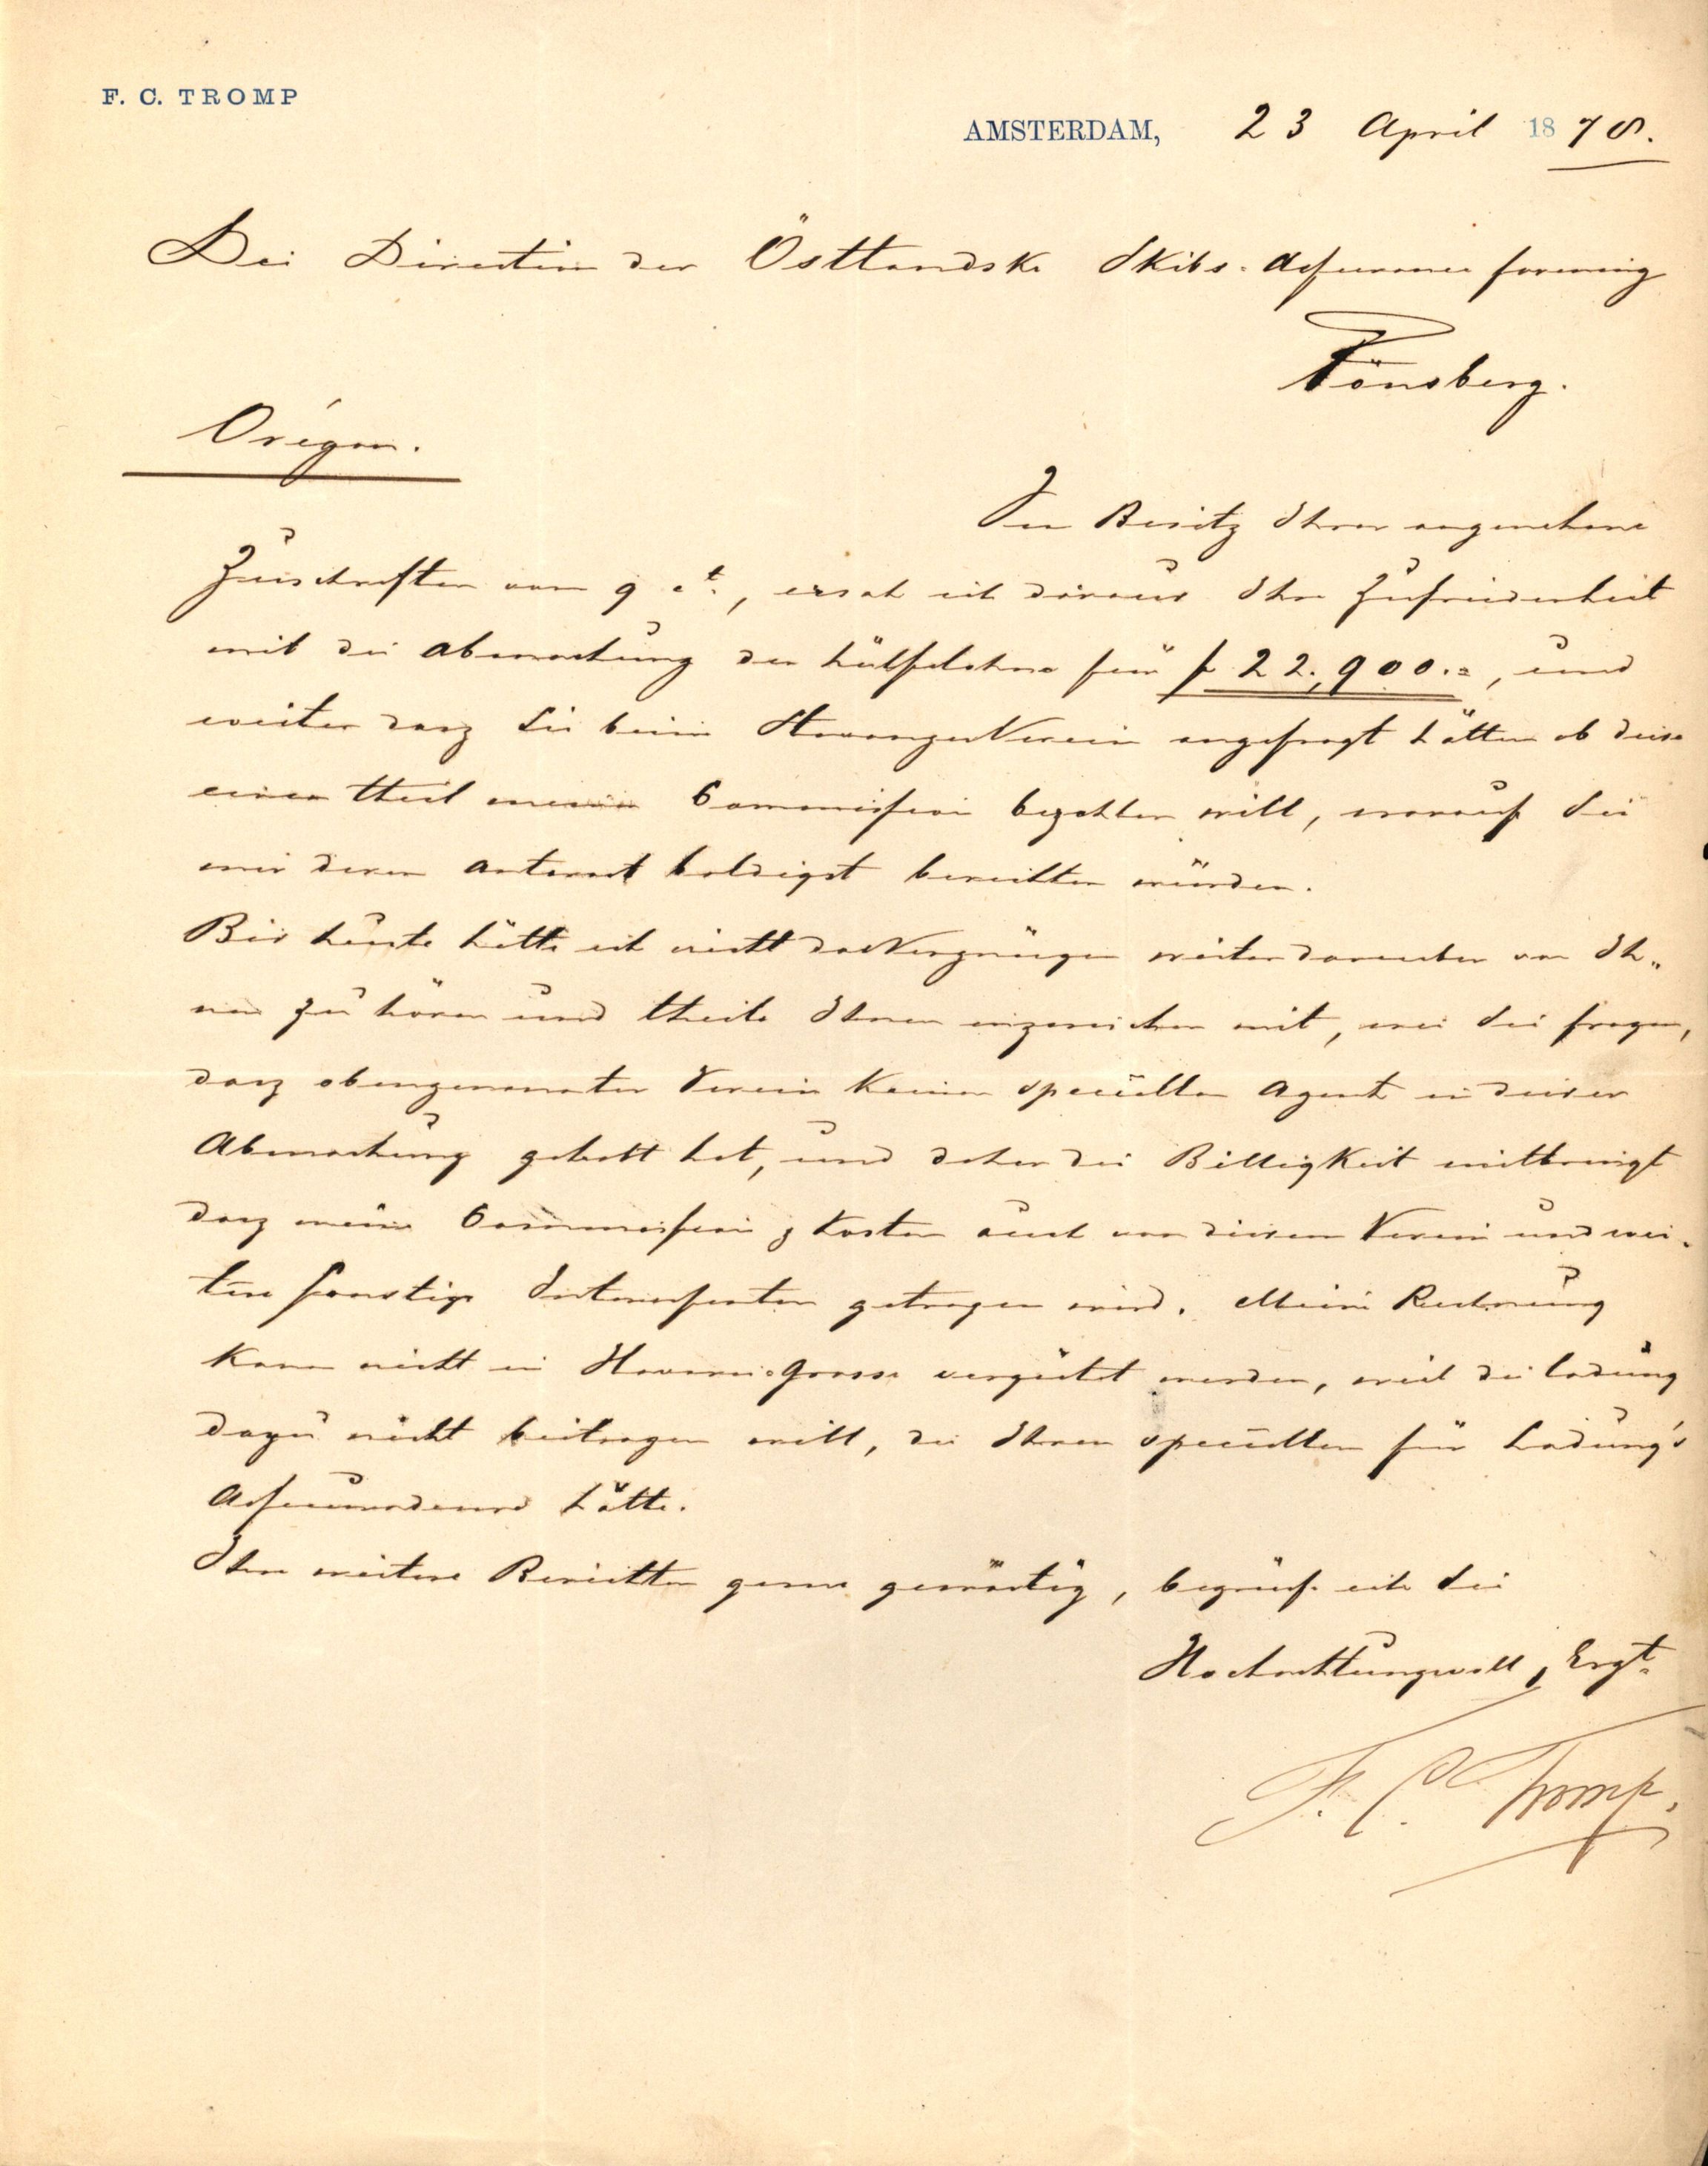 F. C. TROMP
AMSTERDAM, 23 April 1878.
Dei Direction der Östlandske Skibs-Assurance forening
Tönsberg.
Origon.
Im Besitz Ihrer angenehme
Zuschriften vom 9 ct., ersah ich daraus Ihre Zufriedenheit
mit die Abmachung der hülfslohne für f 22,900.=, und
weiter dasz Sie beim Stavanger Verein angefragt hätten ob diese
einen theil meine Commission bezahlen will, worauf Sie
mir deren Antwort baldigst berichten würden.
Bis heute hätte ich nicht das Vergnügen weiter darueber von Ih„
nen zu hören und theile Ihnen inzwischen mit, wei Sie fragen,
dasz obengenannter Verein keinen speciellen Agent in dieser
Abmachung gehabt hat, und daher die Billigkeit mitbringt
dasz meine Commission & Kosten auch von diesen Verein und wei„
tere sonstige Interessenten getragen wird. Meine Rechnung
kann nicht in Havarie-Grosse vergütet werden, weil die Ladung
dazu nicht beitragen will, die Ihren speciellen für Ladung's
Assuradeurs hätte.
Ihre weitere Berichten gerne gewärtig, begrüsse ich Sie
Hochachtungsvoll, Ergt.
F. C. Tromp.